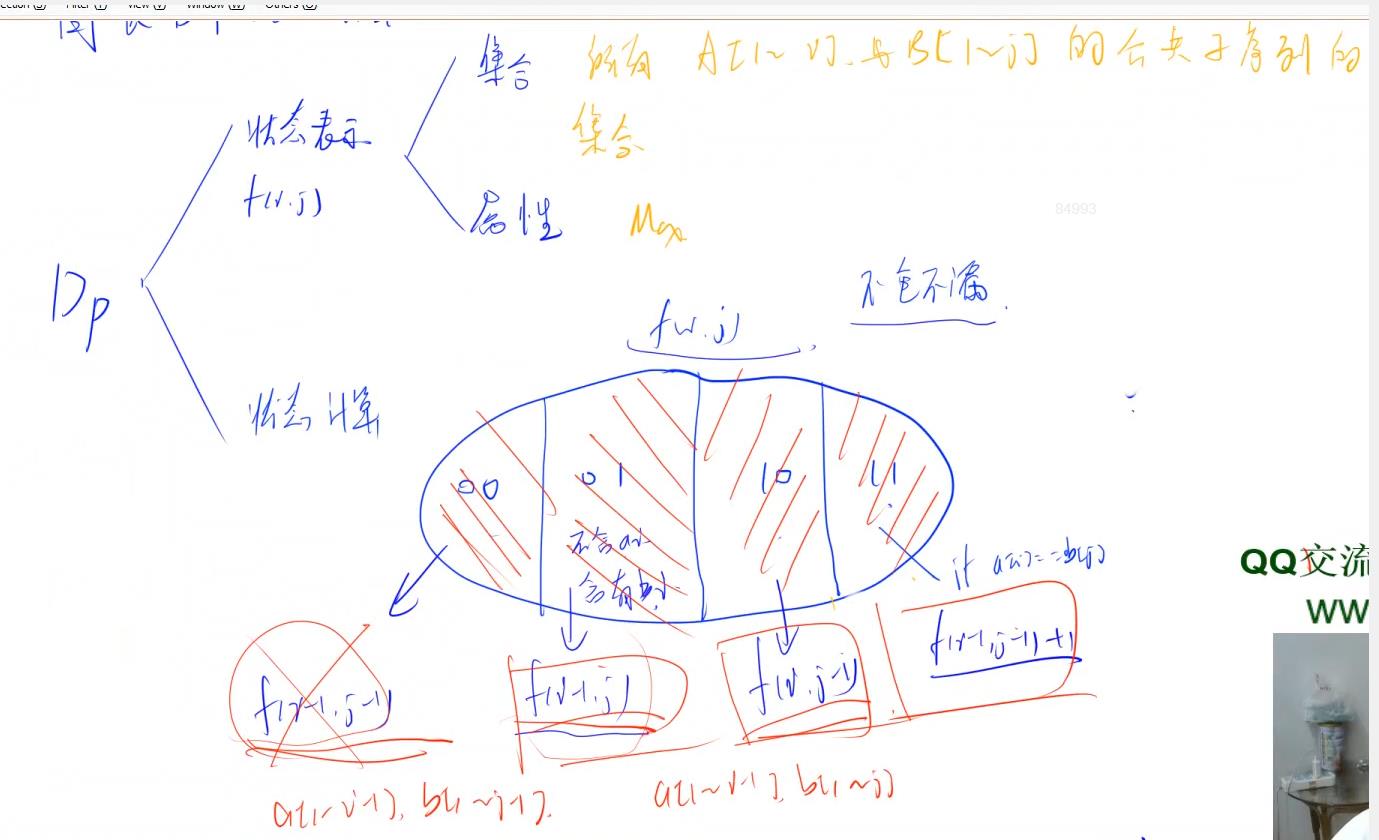 ection (S) Filter (T) View (V) Window (W) Others (O)
集合 所有 A[1~i] 与 B[1~j] 的公共子序列的
集合
状态表示
f(i,j)
属性 Max
84993
DP
不重不漏
f(i,j)
状态计算
00 01 10 11
不含a[i]
含有b[j]
if a[i]==b[j]
QQ交流
WW
f(i-1,j-1)+1
f(i-1,j-1) f(i-1,j) f(i,j-1)
a[1~i-1], b[1~j-1].
a[1~i-1], b[1~j]